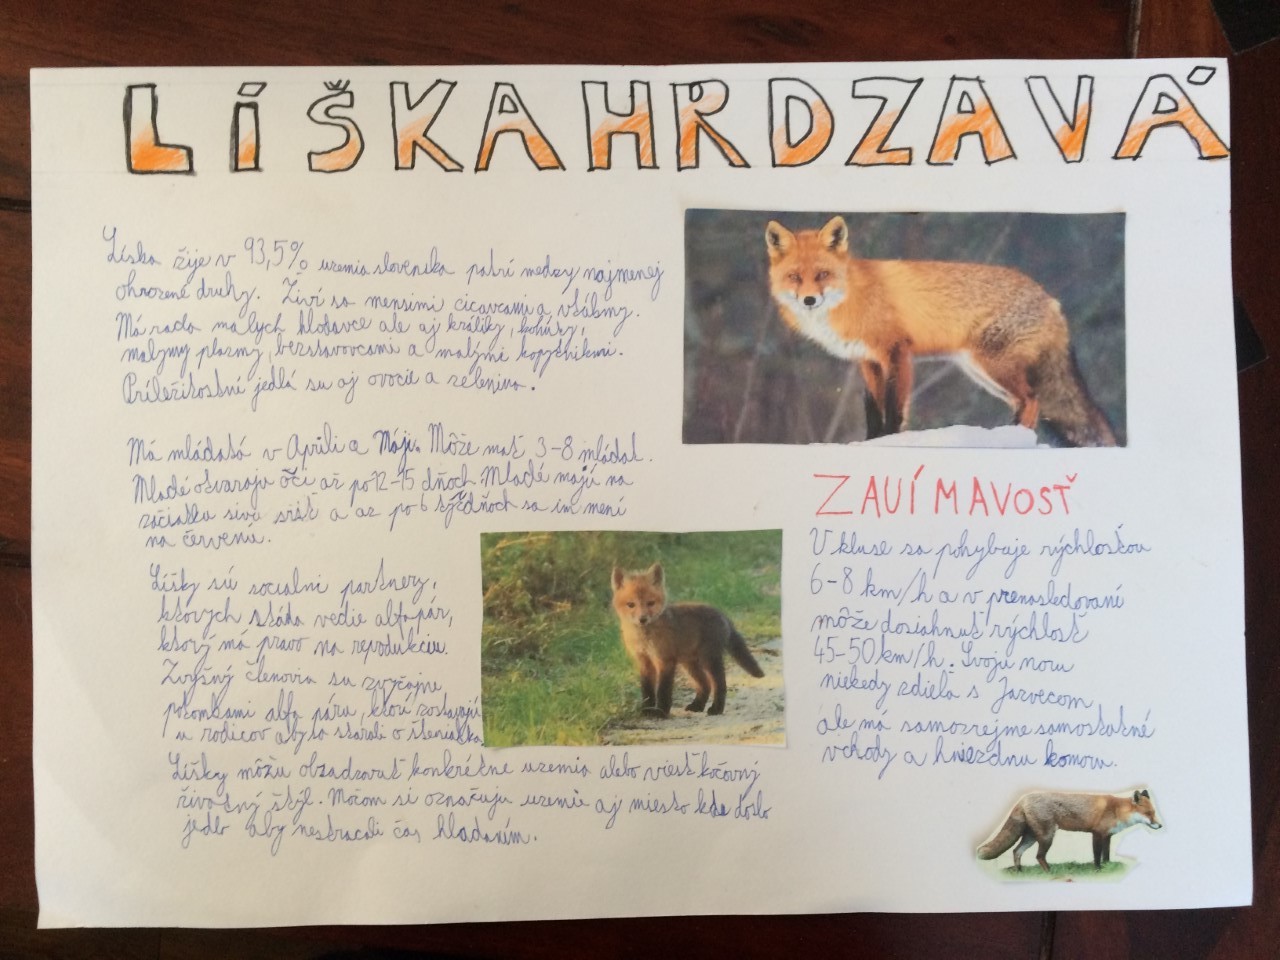 LÍŠKA HRDZAVÁ
Líška žije v 93,5% uzemia slovenska patrí medzy najmenej
ohrozené druhy. Živí sa mensimi cicavcami a vtákmy.
Má rada malych hlodavce ale aj králiky, kohúty,
malymy plazmy, bezstavovcami a malými kopytnikmi.
Príležitostné jedlá su aj ovocie a zelenina.
Má mláďatá v Apríli a Máji. Môže mať 3-8 mláďat.
Mladé otvaraju oči až po 12-15 dňoch. Mladé majú na
začiatku sivú srsť a az po 6 týždňoch sa im mení
na červenú.
Líšky sú socialni partnery,
ktorych stáda vedie alfa pár,
ktorý má pravo na reprodukciu.
Zvyšný členovia su zvyčajne
potomkami alfa páru, ktorí zostavajú
u rodicov aby sa starali o šteniatka
Líšky môžu obsadzovať konkrétne uzemia alebo viesť kočovný
živočný štýl. Močom si označuju uzemie aj miesto kde došlo
jedlo aby nestracali čas hladaním.
ZAUÍMAVOSŤ
V kluse sa pohybuje rýchlosťou
6-8 km/h a v prenasledovaní
môže dosiahnuť rýchlosť
45-50 km/h. Svoju noru
niekedy zdieľa s Jazvecom
ale má samozrejme samostatné
vchody a hniezdnu komoru.